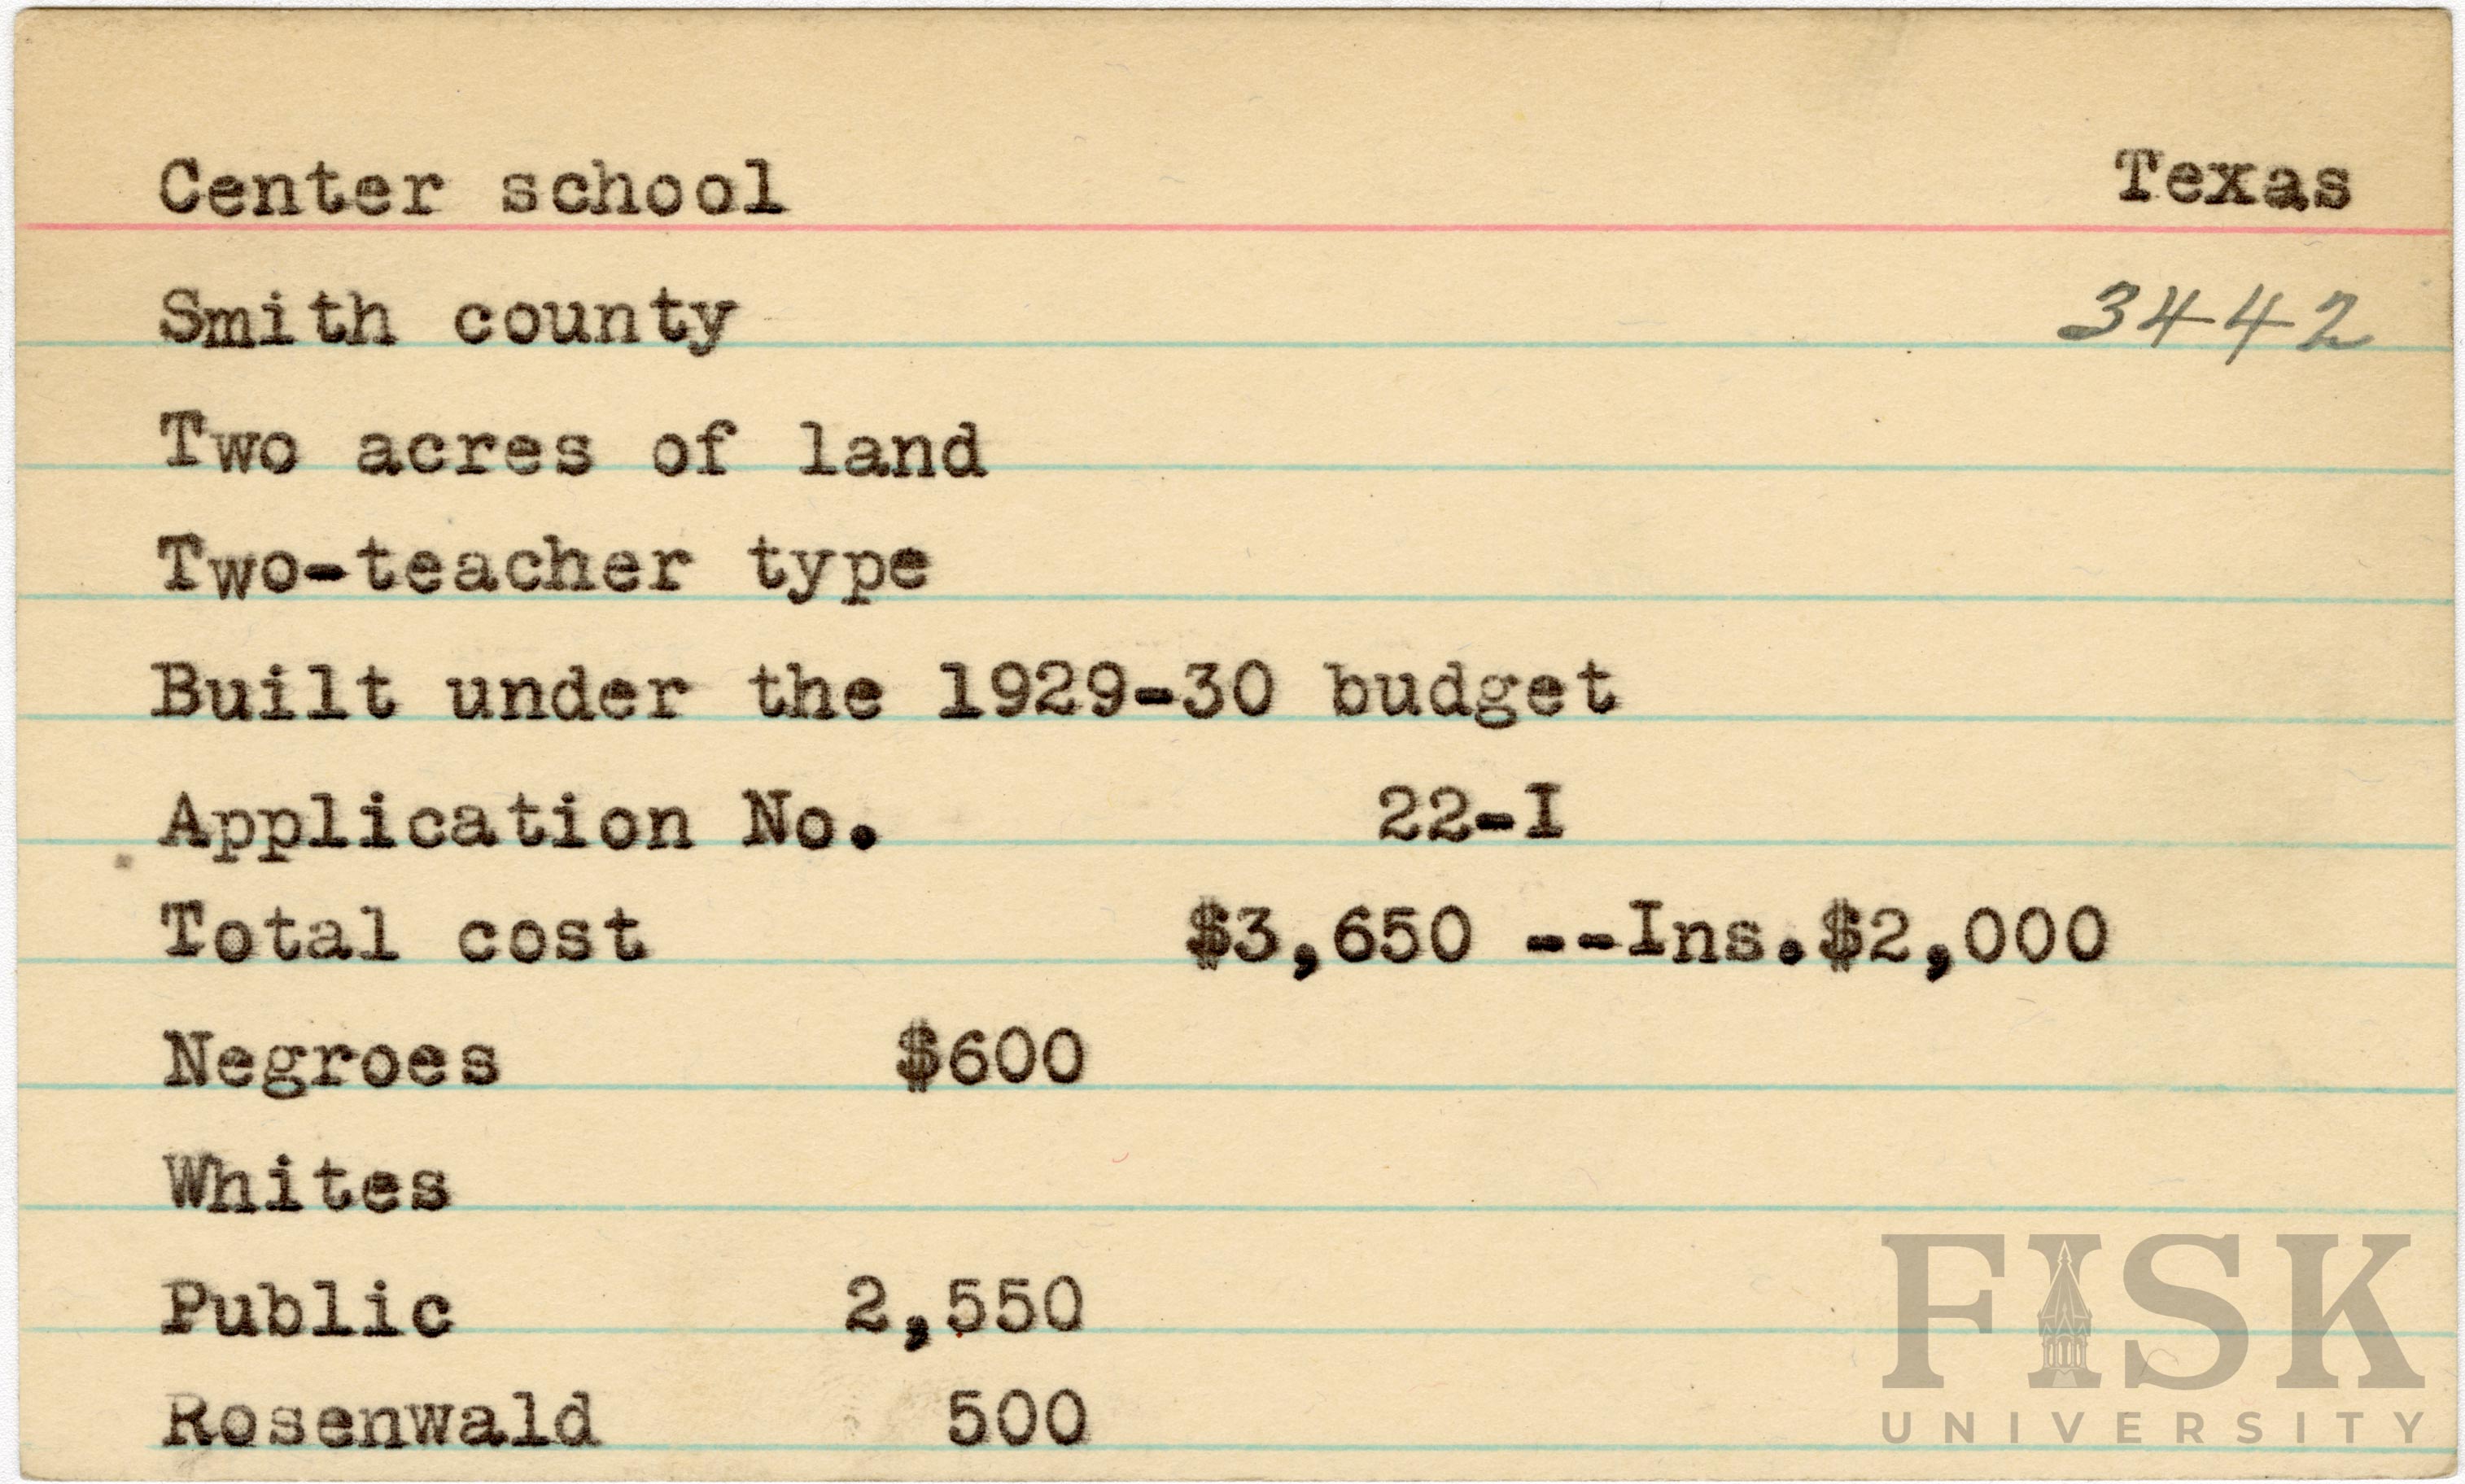 Center school Texas
Smith county 3442
Two acres of land
Two-teacher type
Built under the 1929-30 budget
Application No. 22-I
Total cost $3,650 --Ins.$2,000
Negroes $600
Whites
Public 2,550
Rosenwald 500
FISK
UNIVERSITY